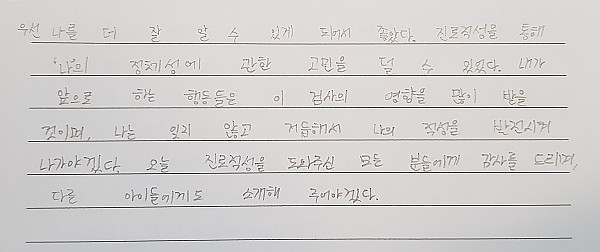 우선 나를 더 잘 알 수 있게 되어서 좋았다. 진로적성을 통해
'나'의 정체성에 관한 고민을 덜 수 있었다. 내가
앞으로 하는 행동들은 이 검사의 영향을 많이 받을
것이며, 나는 잊지 않고 거듭해서 나의 적성을 발전시켜
나가야겠다. 오늘 진로적성을 도와주신 모든 분들에게 감사를 드리며,
다른 아이들에게도 소개해 주어야겠다.